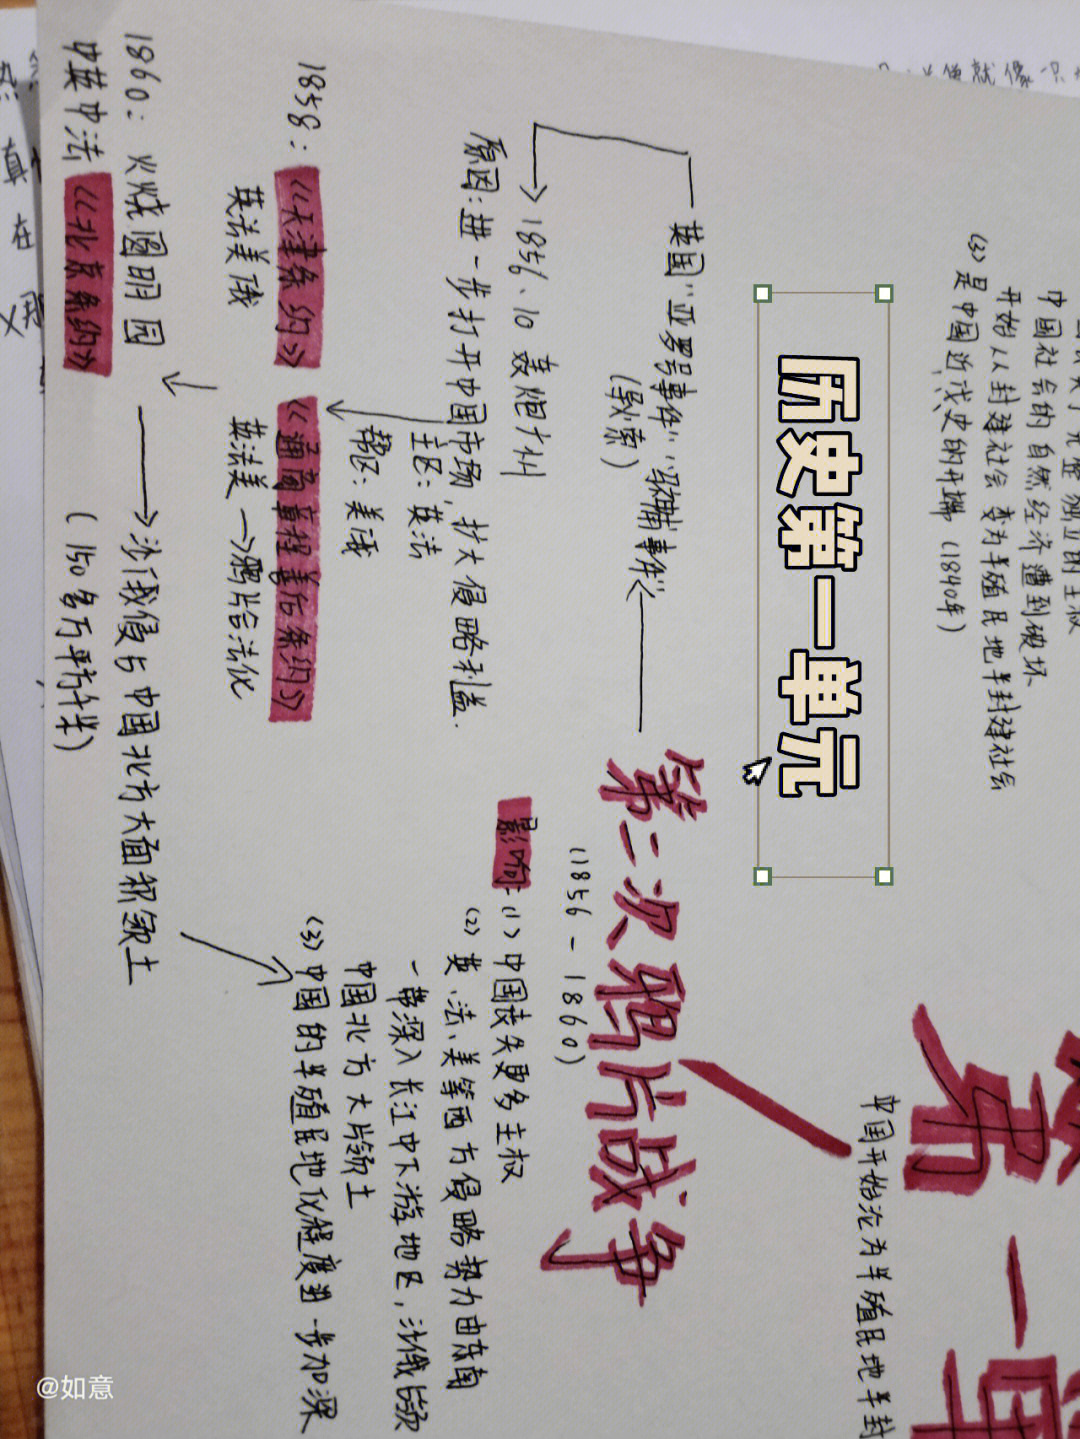 历史第一单元
中国社会的自然经济遭到破坏
开始从封建社会变为半殖民地半封建社会
(3)是中国近代史的开端(1840年)
第一单
中国开始沦为半殖民地半封
第二次鸦片战争
(1856-1860)
英国"亚罗号事件""马神甫事件"
(导火索)
1856.10 轰炮广州
原因:进一步打开中国市场,扩大侵略利益.
主区:英法
帮区:美俄
1858:《天津条约》《通商章程善后条约》
英法美俄
英法美→鸦片合法化
1860:火烧圆明园
中英中法《北京条约》
沙俄侵占中国北方大面积领土
(150多万平方千米)
影响:(1)中国丧失更多主权
(2)英、法、美等西方侵略势力由东南
一带深入长江中下游地区,沙俄占领
中国北方大片领土
(3)中国的半殖民地化程度进一步加深
@如意